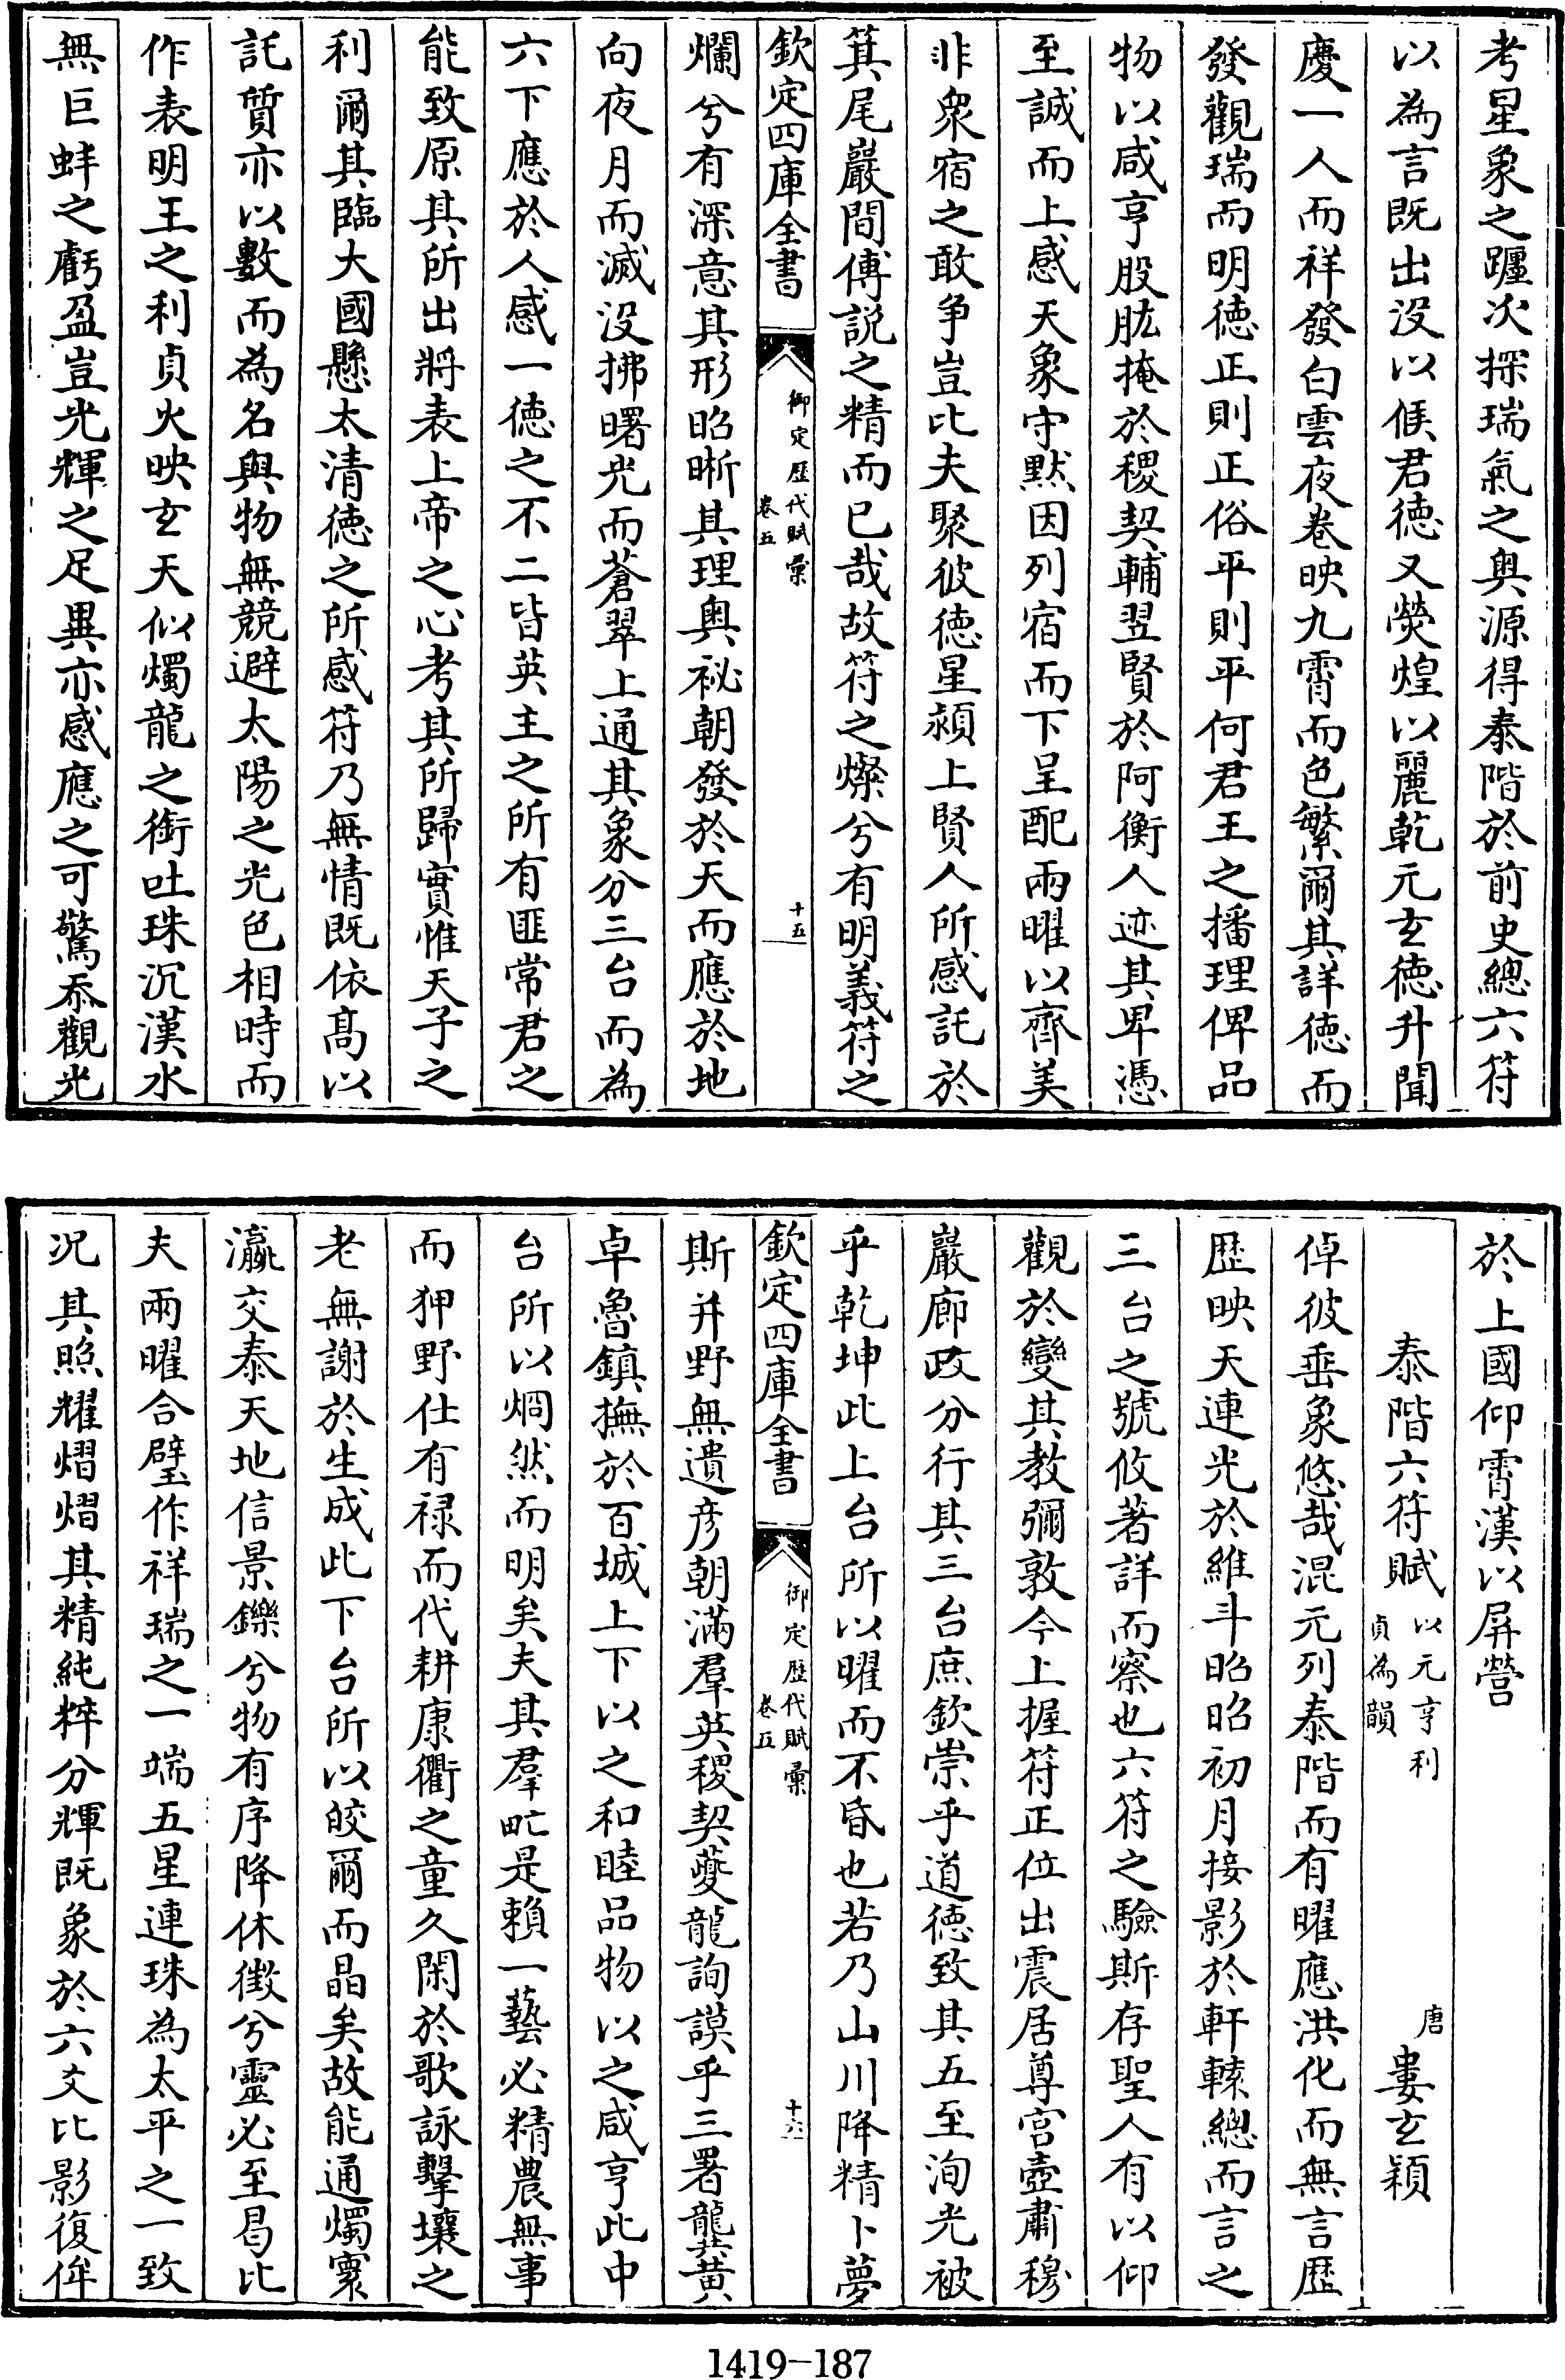 考星象之躔次探瑞氣之奥源得泰階於前史總六符
以為言既出没以候君徳又熒煌以麗乾元玄徳升聞
慶一人而祥發白雲夜卷映九霄而色繁爾其詳徳而
發觀瑞而明徳正則正俗平則平何君王之播理俾品
物以咸亨股肱掩於稷契輔翌賢於阿衡人迹其卑憑
至誠而上感天象守黙因列宿而下呈配兩曜以齊美
非衆宿之敢争豈比夫聚彼徳星潁上賢人所感託於
箕尾巖間傅説之精而已哉故符之燦兮有明義符之
欽定四庫全書
御定歴代賦彙
卷五
十五
爛兮有深意其形昭晰其理奥祕朝發於天而應於地
向夜月而滅没拂曙光而蒼翠上通其象分三台而為
六下應於人感一徳之不二皆英主之所有匪常君之
能致原其所出將表上帝之心考其所歸實惟天子之
利爾其臨大國懸太清徳之所感符乃無情既依髙以
託質亦以數而為名與物無競避太陽之光色相時而
作表明王之利貞火映玄天似燭龍之銜吐珠沉漢水
無巨蚌之虧盈豈光輝之足異亦感應之可驚忝觀光
於上國仰霄漢以屏營
泰階六符賦
以元亨利
貞為韻
唐
婁玄穎
倬彼垂象悠哉混元列泰階而有曜應洪化而無言歴
歴映天連光於維斗昭昭初月接影於軒轅總而言之
三台之號攸著詳而察也六符之驗斯存聖人有以仰
觀於變其教彌敦今上握符正位出震居尊宫壼肅穆
巖廊政分行其三台庶欽崇乎道徳致其五至洵光被
乎乾坤此上台所以曜而不昏也若乃山川降精卜夢
欽定四庫全書
御定歴代賦彙
卷五
十六
斯并野無遺彦朝滿羣英稷契夔龍詢謨乎三署龔黄
卓魯鎮撫於百城上下以之和睦品物以之咸亨此中
台所以烱然而明矣夫其羣甿是賴一藝必精農無事
而狎野仕有禄而代耕康衢之童久閑於歌詠擊壤之
老無謝於生成此下台所以皎爾而晶矣故能通燭寰
瀛交泰天地信景鑠兮物有序降休徴兮靈必至曷比
夫兩曜合璧作祥瑞之一端五星連珠為太平之一致
况其照耀熠熠其精純粹分輝既象於六爻比影復侔
1419-187